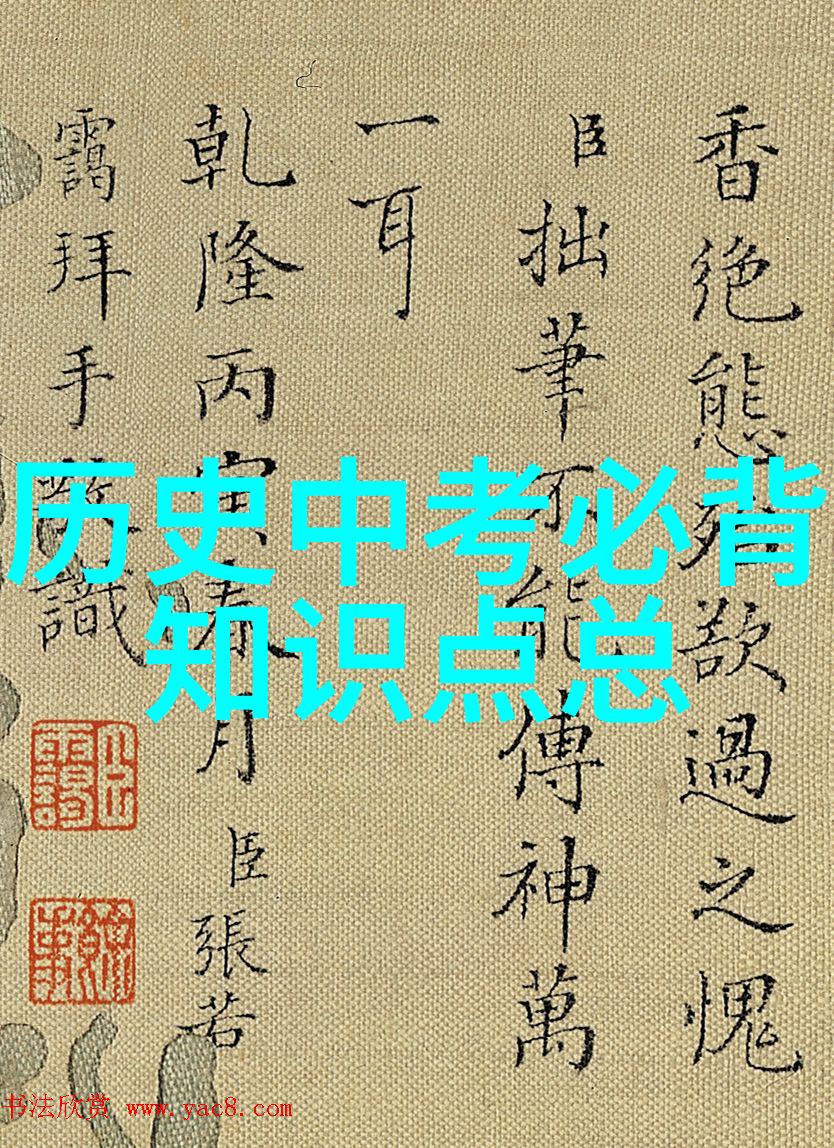 香絶態殆欲過之愧
臣拙筆不能傳神萬
一耳
乾隆丙寅春月臣張若
靄拜手敬識
历史中考必背
知识点总
书法欣赏 www.yac8.com